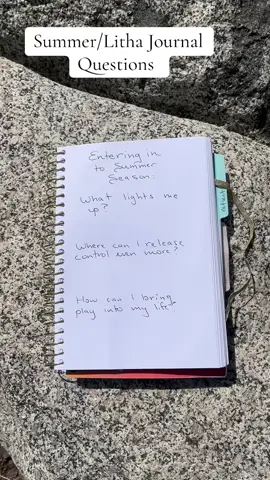 Summer/Litha Journal
Questions
Entering in
to Summer
Season:
What lights me
up?
Where can I release
control even more?
How can I bring
play into my life?